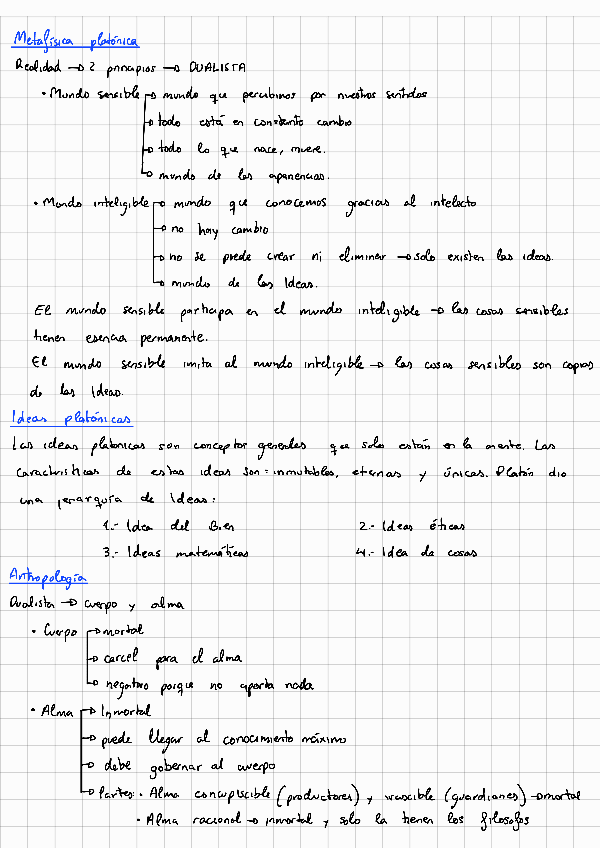 Metafísica platónica
Realidad → 2 principios → DUALISTA
• Mundo sensible → mundo que percibimos por nuestros sentidos
→ todo está en constante cambio
→ todo lo que nace, muere.
→ mundo de las apariencias.
• Mundo inteligible → mundo que conocemos gracias al intelecto
→ no hay cambio
→ no se puede crear ni eliminar → solo existen las ideas.
→ mundo de las Ideas.
El mundo sensible participa en el mundo inteligible → las cosas sensibles
tienen esencia permanente.
El mundo sensible imita al mundo inteligible → las cosas sensibles son copias
de las Ideas.
Ideas platónicas
Las ideas platonicas son conceptos generales que solo están en la mente. Las
características de estas ideas son: inmutables, eternas y únicas. Platón dio
una jerarquía de Ideas:
1.- Idea del Bien 2.- Ideas éticas
3.- Ideas matemáticas 4.- Idea de cosas
Antropología
Dualista → cuerpo y alma
• Cuerpo → mortal
→ carcel para el alma
→ negativo porque no aporta nada
• Alma → Inmortal
→ puede llegar al conocimiento máximo
→ debe gobernar al cuerpo
→ Partes: • Alma concupiscible (productores) y irascible (guardianes) → mortal
• Alma racional → inmortal y solo la tienen los filosofos